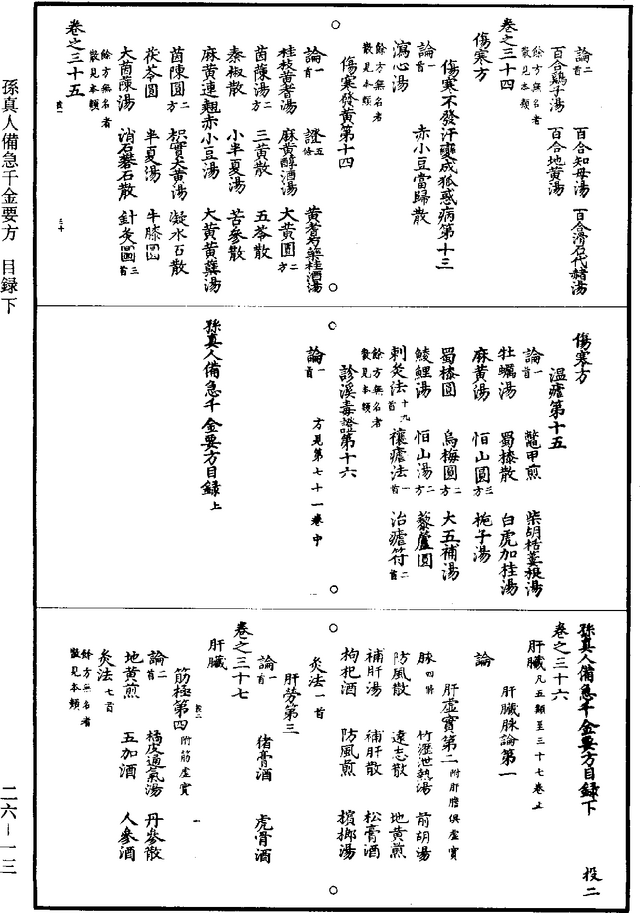 論二首
百合知母湯
百合滑石代赭湯
百合雞子湯
百合地黃湯
餘方無名者
散見本類
卷之三十四
傷寒方
傷寒不發汗變成狐惑病第十三
論一首
赤小豆當歸散
瀉心湯
餘方無名者
散見本類
傷寒發黃第十四
論一首
證五條
黃耆芍藥桂酒湯
桂枝黃耆湯
麻黃醇酒湯
大黃圓二方
茵陳湯二方
三黃散
五苓散
秦椒散
小半夏湯
苦參散
麻黃連翹赤小豆湯
大黃黃蘗湯
茵陳圓二方
枳實大黃湯
凝水石散
茯苓圓
半夏湯
牛膝圓
大茵陳湯
消石礬石散
針灸圖三首
餘方無名者
散見本類
卷之三十五
傷寒方
溫瘧第十五
論一首
鼈甲煎
柴胡栝蔞根湯
牡蠣湯
蜀漆散
白虎加桂湯
麻黃湯
恒山圓三方
梔子湯
蜀漆圓
烏梅圓二方
大五補湯
鯪鯉湯
恒山湯二方
藜蘆圓
刺灸法十九首
禳瘧法一首
治瘧符二首
餘方無名者
散見本類
診溪毒證第十六
論一首
方見第七十一卷中
孫真人備急千金要方目録上
孫真人備急千金要方目録下
投二
卷之三十六
肝臟凡五類至三十七卷上
肝臟脉論第一
論
脉四條
肝虛實第二附肝膽俱虛實
竹瀝泄熱湯
前胡湯
防風散
遠志散
地黃煎
補肝湯
補肝散
松膏酒
枸杞酒
防風煎
檳榔湯
灸法一首
肝勞第三
論一首
猪膏酒
虎骨酒
卷之三十七
肝臟
筋極第四附筋虛實
論二首
橘皮通氣湯
丹參散
地黃煎
五加酒
人參酒
灸法七首
餘方無名者
散見本類
孫真人備急千金要方 目録下
二六-一三